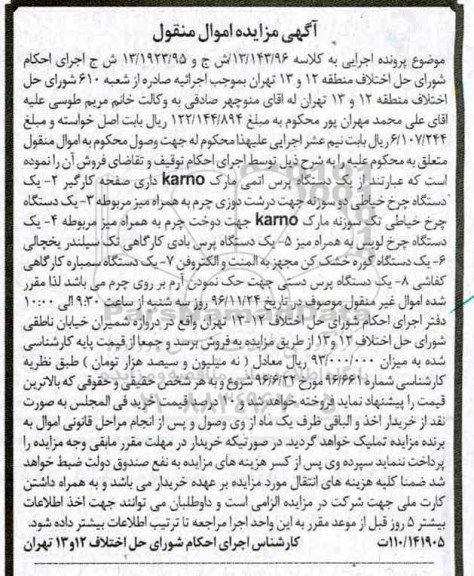 آگهی مزایده اموال منقول
موضوع پرونده اجرایی به کلاسه ۱۳/۱۴۳/۹۶/ش ج و ۱۳/۱۹۲۳/۹۵ ش ج اجرای احکام
شورای حل اختلاف منطقه ۱۲ و ۱۳ تهران بموجب اجرائیه صادره از شعبه ۶۱۰ شورای حل
اختلاف منطقه ۱۲ و ۱۳ تهران له اقای منوچهر صادقی به وکالت خانم مریم طوسی علیه
اقای علی محمد مهران پور محکوم به مبلغ ۱۲۲/۱۴۴/۸۹۴ ریال بابت اصل خواسته و مبلغ
۶/۱۰۷/۲۴۴ ریال بابت نیم عشر اجرایی علیهذا محکوم له جهت وصول محکوم به اموال منقول
متعلق به محکوم علیه را به شرح ذیل توسط اجرای احکام توقیف و تقاضای فروش آن را نموده
است که عبارتند از یک دستگاه پرس اتمی مارک karno داری صفحه کارگیر ۲- یک
دستگاه چرخ خیاطی دو سوزنه جهت درشت دوزی چرم به همراه میز مربوطه ۳- یک دستگاه
چرخ خیاطی تک سوزنه مارک karno جهت دوخت چرم به همراه میز مربوطه ۴- یک
دستگاه چرخ لویس به همراه میز ۵- یک دستگاه پرس بادی کارگاهی تک سیلندر یخچالی
۶- یک دستگاه کوره خشک کن مجهز به المنت و الکتروفن ۷- یک دستگاه سمباره کارگاهی
کفاشی ۸- یک دستگاه پرس دستی جهت حک نمودن آرم بر روی چرم می باشد لذا مقرر
شده اموال غیر منقول موصوف در تاریخ ۹۶/۱۱/۲۴ روز سه شنبه از ساعت ۹:۳۰ الی ۱۰:۰۰
دفتر اجرای احکام شورای حل اختلاف ۱۲-۱۳ تهران واقع در دروازه شمیران خیابان ناطقی
شورای حل اختلاف ۱۲ و ۱۳ از طریق مزایده به فروش برسد و جمعا از قیمت پایه کارشناسی
شده به میزان ۹۳/۰۰۰/۰۰۰ ریال معادل ( نه میلیون و سیصد هزار تومان ) طبق نظریه
کارشناسی شماره ۹۶/۶۶۱ مورخ ۹۶/۶/۲۲ شروع و به هر شخص حقیقی و حقوقی که بالاترین
قیمت را پیشنهاد نماید فروخته خواهد شد و ۱۰ درصد قیمت خرید فی المجلس به صورت
نقد از خریدار اخذ و الباقی ظرف یک ماه از وی وصول و پس از انجام مراحل قانونی اموال به
برنده مزایده تملیک خواهد گردید. در صورتیکه خریدار در مهلت مقرر مابقی وجه مزایده را
پرداخت ننماید سپرده وی پس از کسر هزینه های مزایده به نفع صندوق دولت ضبط خواهد
شد ضمنا کلیه هزینه های انتقال مورد مزایده بر عهده خریدار می باشد و به همراه داشتن
کارت ملی جهت شرکت در مزایده الزامی است و داوطلبان می توانند جهت اخذ اطلاعات
بیشتر ۵ روز قبل از موعد مقرر به این واحد اجرا مراجعه تا ترتیب اطلاعات بیشتر داده شود.
۱۱۰/۱۴۱۹۰۵ت کارشناس اجرای احکام شورای حل اختلاف ۱۲و۱۳ تهران